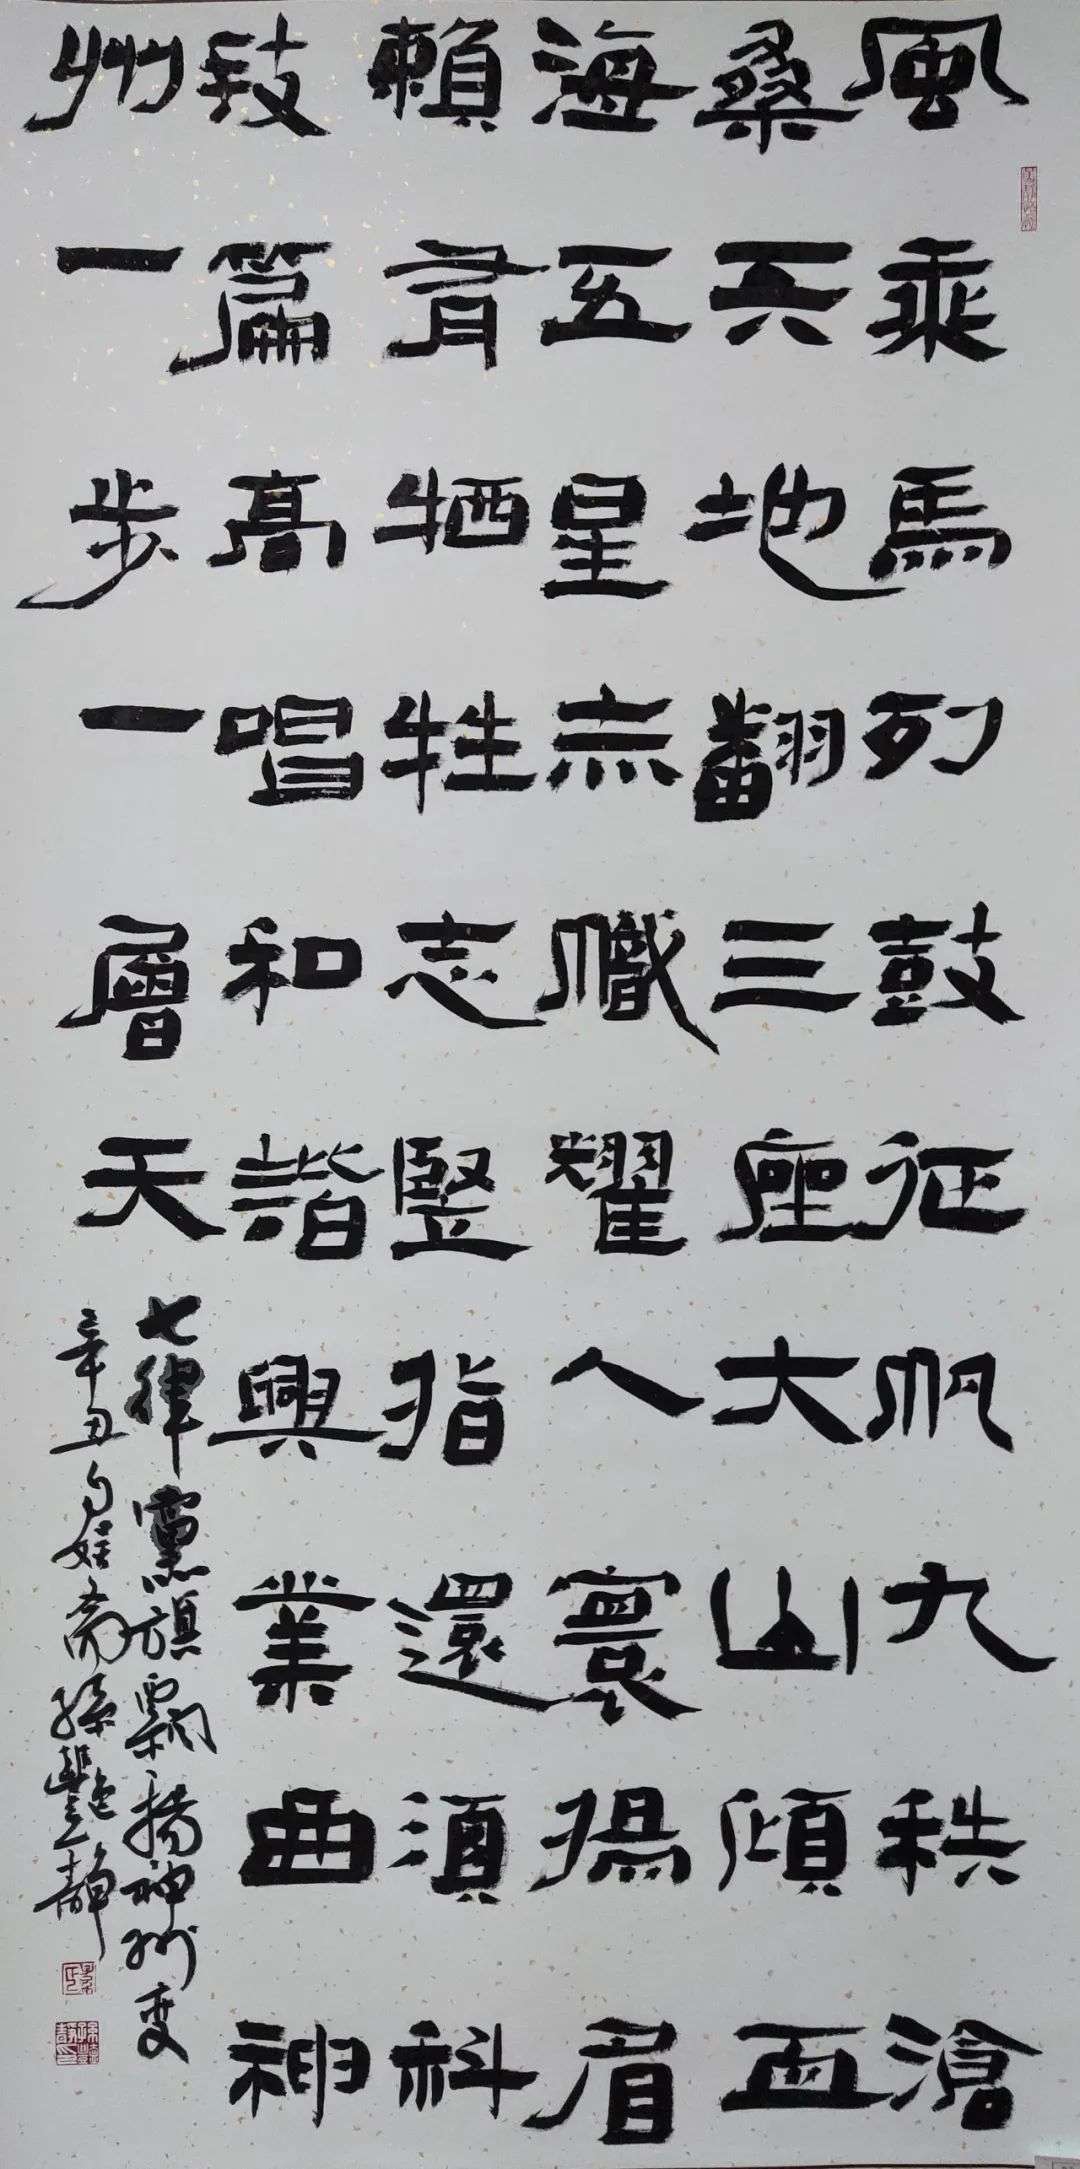 風乘馬列鼓征帆九秩滄
桑天地翻三座大山傾血
海五星赤幟耀人寰揚眉
賴有牺牲志竪指還須科
技篇高唱和諧興業曲神
州一步一層天
七律黨旗飄揚神州变
辛丑 斋孫艷靜